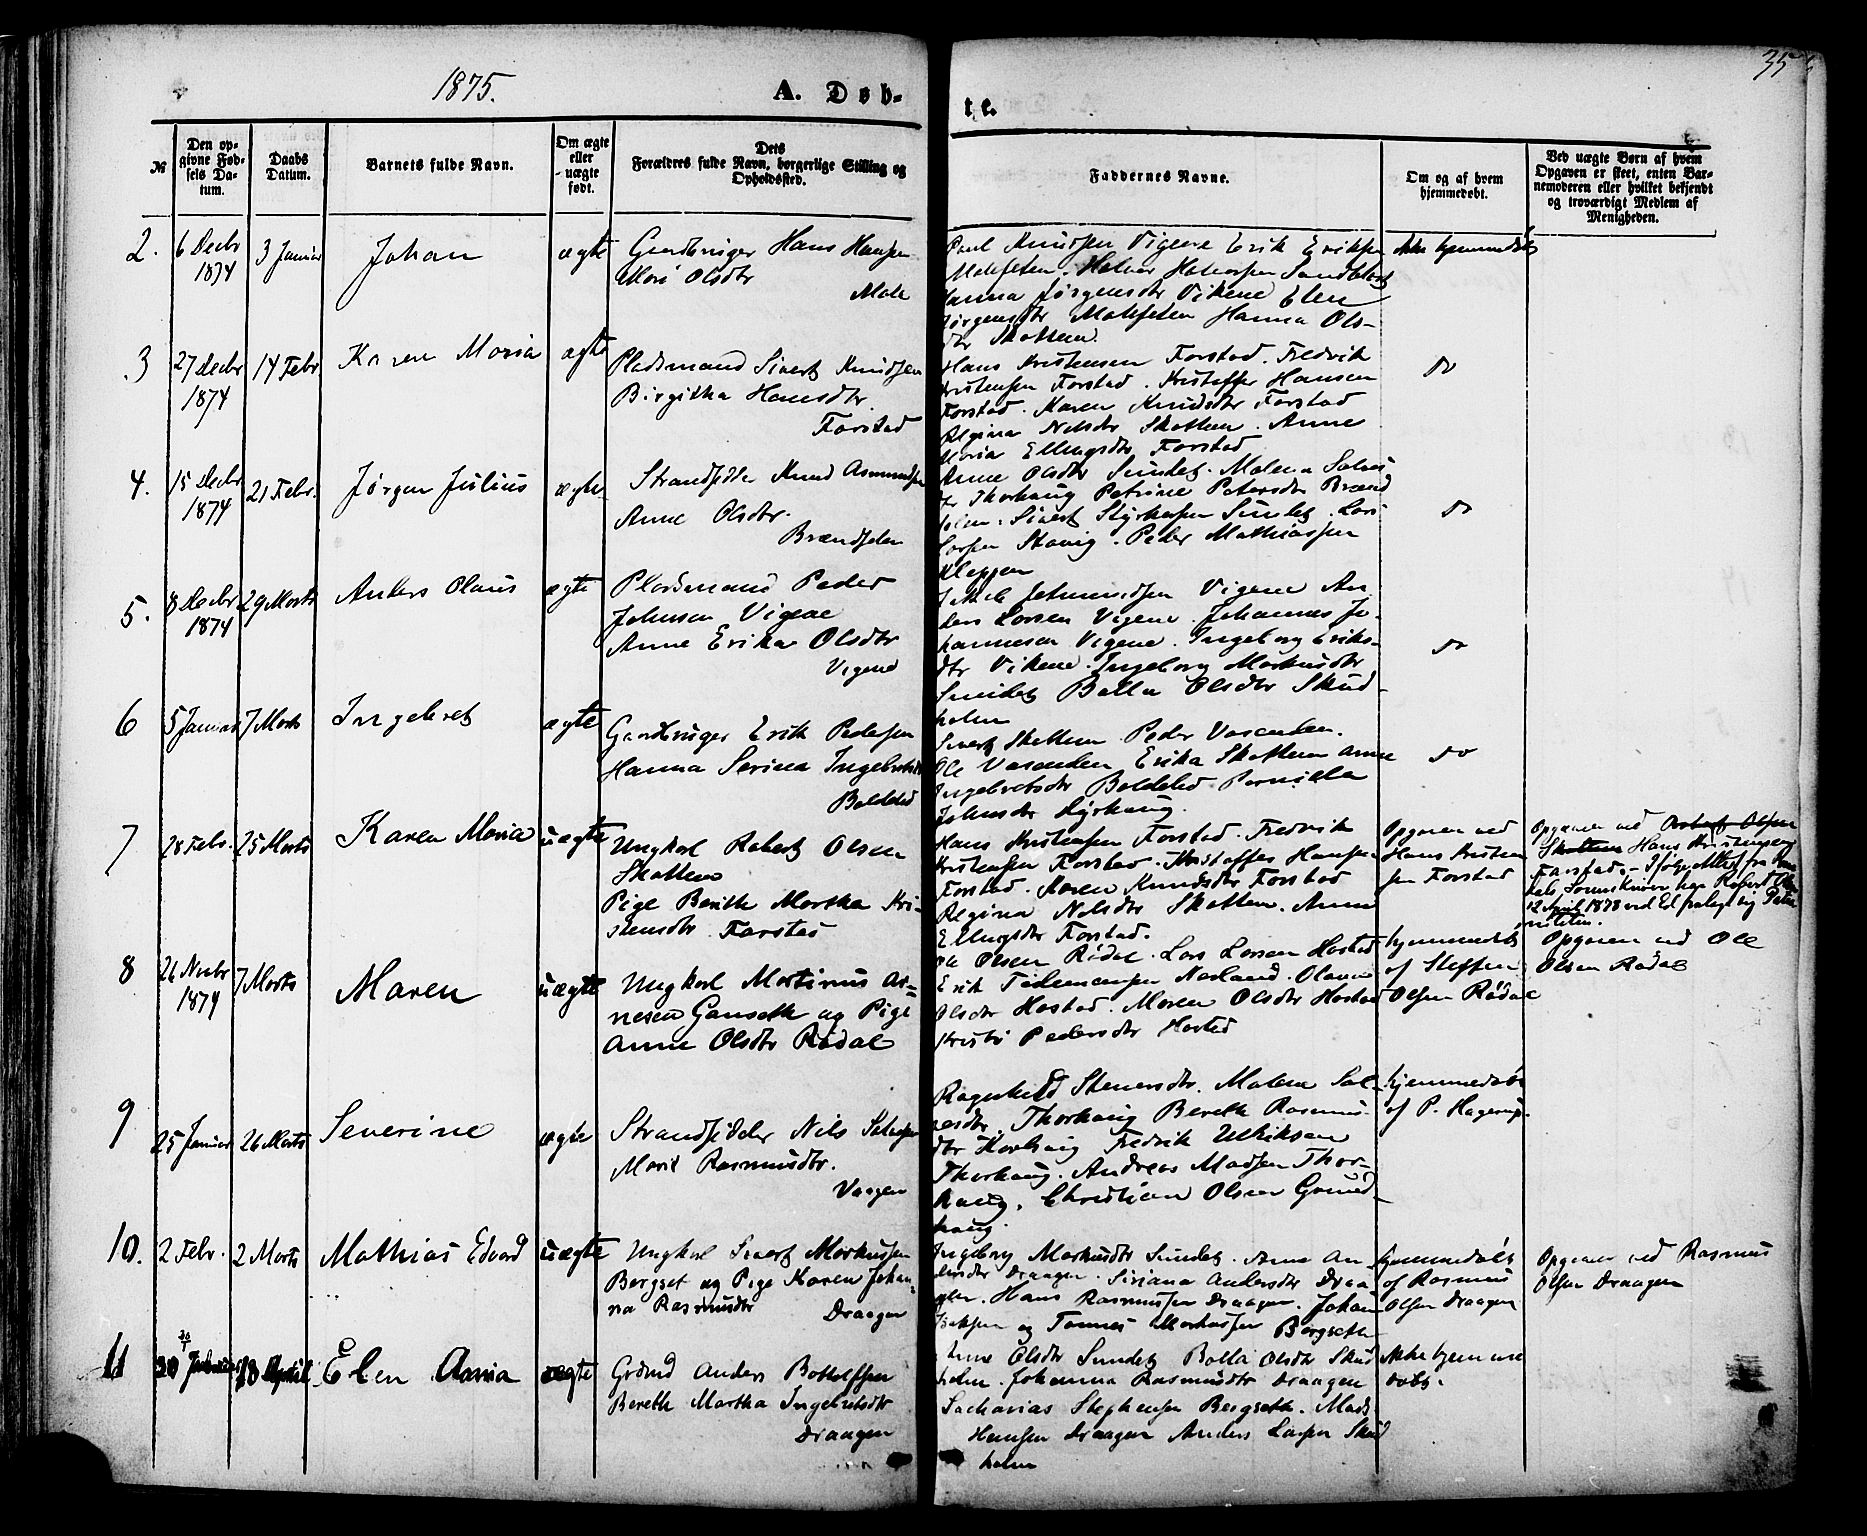 1875.
A. Døb-
te.
35
№
Den op-
givne Fød-
sels Da-
tum.
Daabs
Datum.
Barnets fulde Navn.
Om ægte
eller
uægte
født.
Dets
Forældres fulde Navn, borgerlige Stilling og
Opholdssted.
Faddernes Navne.
Om og af hvem
hjemmedøbt.
Ved uægte Børn af hvem
Opgaven er skeet, enten Bar-
nemoderen eller hvilket bekjendt
og troværdigt Medlem af
Menigheden.
2.
6 Decbr
1874
3 Januar
Johan
ægte
Gaardbruger Hans Hansen
Mari Olsdtr
Male
Poul Knudsen Vigene Erik Eriksen
Maleseten. Halvor Halvorsen Sandblost
Hanna Jørgensdtr Vikene Elen
Jørgensdtr Maleseten Hanna Ols-
dtr Skottem
Ikke hjemmedøbt
3
27 Decbr
1874
14 Febr
Karen Maria
ægte
Pladsmand Sivert Knudsen
Birgitha Hansdtr
Farstad
Hans Kristensen Farstad. Fredrik
Kristensen Farstad. Kristoffer Hansen
Farstad. Karen Knudsdtr Farstad
Regina Nelsdtr Skottem. Anne
Maria Ellingsdtr Farstad
do
4.
15 Decbr
1874
21 Febr.
Jørgen Julius
ægte.
Strandsidder Knud Asmundsen
Anne Olsdtr.
Brændselen
Anne Olsdtr Sundet. Malena Salves
dtr Thorhaug Petrine Petersdtr Brænd
selen. Sivert Styrkersen Sundet. Lars
Larsen Stavig. Peder Mathiassen
Kleppen
do
5.
8 Decbr
1874
29 Marts
Anders Olaus
ægte
Pladsmand Peder
Johnsen Vigene
Anne Erika Olsdtr
Vigene
Johannessen Vigene An
ders Larsen Vigene. Johannes Jo-
hannesen Vigene. Ingeborg Eriks-
dtr Vikene. Ingeborg Markusdtr
Sundet Balla Olsdtr Skud-
holm
do
6
5 Januar
7 Marts
Ingebret
ægte
Gaardbruger Erik Pedersen
Hanna Serina Ingebretsdtr
Boldstad
Sivert Skottem Peder Vasenden.
Ole Vasenden Erika Skottem Anne
Ingebretsdtr Boldstad Pernilla
Johnsdtr Dyrhaug.
do
7
28 Febr.
25 Marts
Karen Maria
uægte
Ungkarl Robert Olsen
Skottem
Pige Berith Martha Kri-
stensdtr Farstad
Hans Kristensen Farstad. Fredrik
Kristensen Farstad. Kristoffer Hansen
Farstad. Karen Knudsdtr Farstad
Regina Nelsdtr Skottem. Anne
Ellingsdtr Farstad.
Opgaven ved
Hans Kristen
sen Farstad
Opgaven ved Robert Olsen
Skottem Hans Kristensen
Farstad. - Ifølge Attest fra Roms
dals Sorenskriver har Robert Olsen
12 April 1878 ved Ed fralagt sig Pater
niteten.
8
26 Novbr
1874
7 Marts
Maren
uægte
Ungkarl Martinus Ar-
nesen Ganseth og Pige
Anne Olsdtr Rødal
Ole Olsen Rødal. Lars Larsen Hostad
Erik Tidemansen Nerland. Olava
Olsdtr Hostad. Maren Olsdtr Hostad
Kristi Pedersdtr Hostad
hjemmedøbt
af Steffen
Olsen Rødal
Opgaven ved Ole
Olsen Rødal
9
25 Januar
26 Marts
Severine
ægte
Strandsidder Nils Salvesen
Marit Rasmusdtr.
Vaagen
Ragnhild Steenersdtr. Malena Sal-
vesdtr. Thorhaug Bereth Rasmus
dtr Havhaug Fredrik Ulriksen
Thorhaug. Andreas Madsen Thor-
haug. Christian Olsen Grund-
haug.
hjemmedøbt
af P. Hagerup.
10.
2 Febr.
2 Marts
Mathias Edvard
uægte
Ungkarl Sivert Markussen
Bergset og Pige Karen Johan-
na Rasmusdtr
Draagen
Ingeborg Markusdtr Sundet. Anne An-
dersdtr Draagen. Siriana Andersdtr Draa
gen. Hans Rasmussen Draagen. Johan
Isaksen og Tønnes Markussen Bergseth
hjemmedøbt
af Rasmus
Olsen Draagen
Opgaven ved Rasmus
Olsen Draagen
11
30 Januar
18 April
Elen Anna
ægte
Grdmd Anders Bottolfsen
Bereth Martha Ingebretsdtr
Draagen
Anne Olsdtr Sundet Balla Olsdtr Skud
holm. Johanna Rasmusdtr Draagen
Sacharias Stephensen Bergseth. Mads
Hansen Draagen Anders Larsen Skud
holm
Ikke hjemme
døbt.